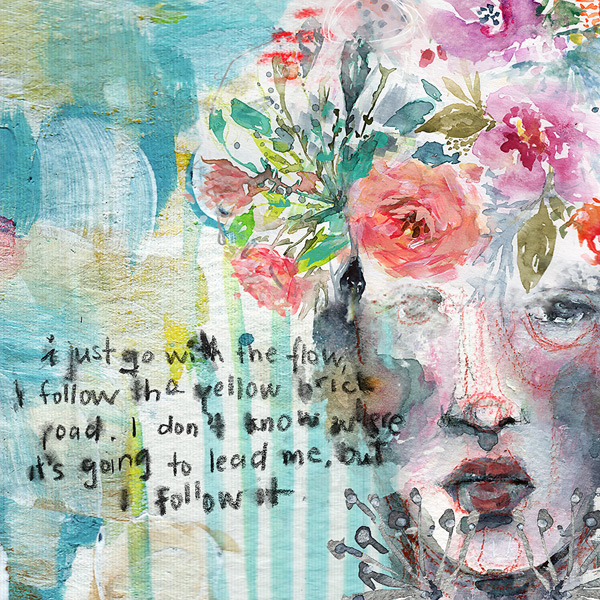 i just go with the flow,
I follow tha yellow brick
road. I don't know where
it's going to lead me, but
I follow it